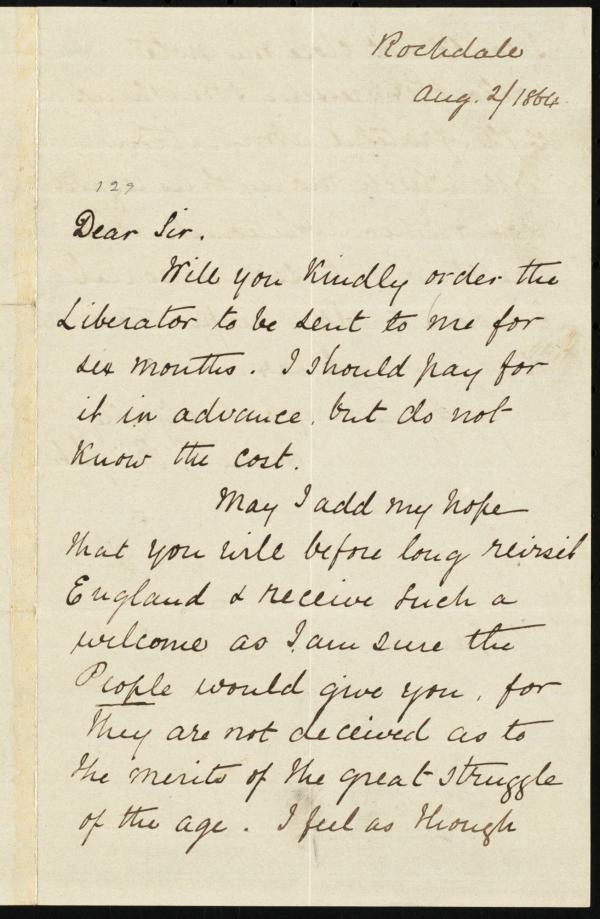 Rochdale
Aug. 2/1864.
127
Dear Sir.
Will you kindly order the
Liberator to be sent to me for
six months. I should pay for
it in advance, but do not
know the cost.
May I add my hope
that you will before long revisit
England & receive such a
welcome as I am sure the
People would give you, for
they are not deceived as to
the merits of the great struggle
of the age. I feel as though